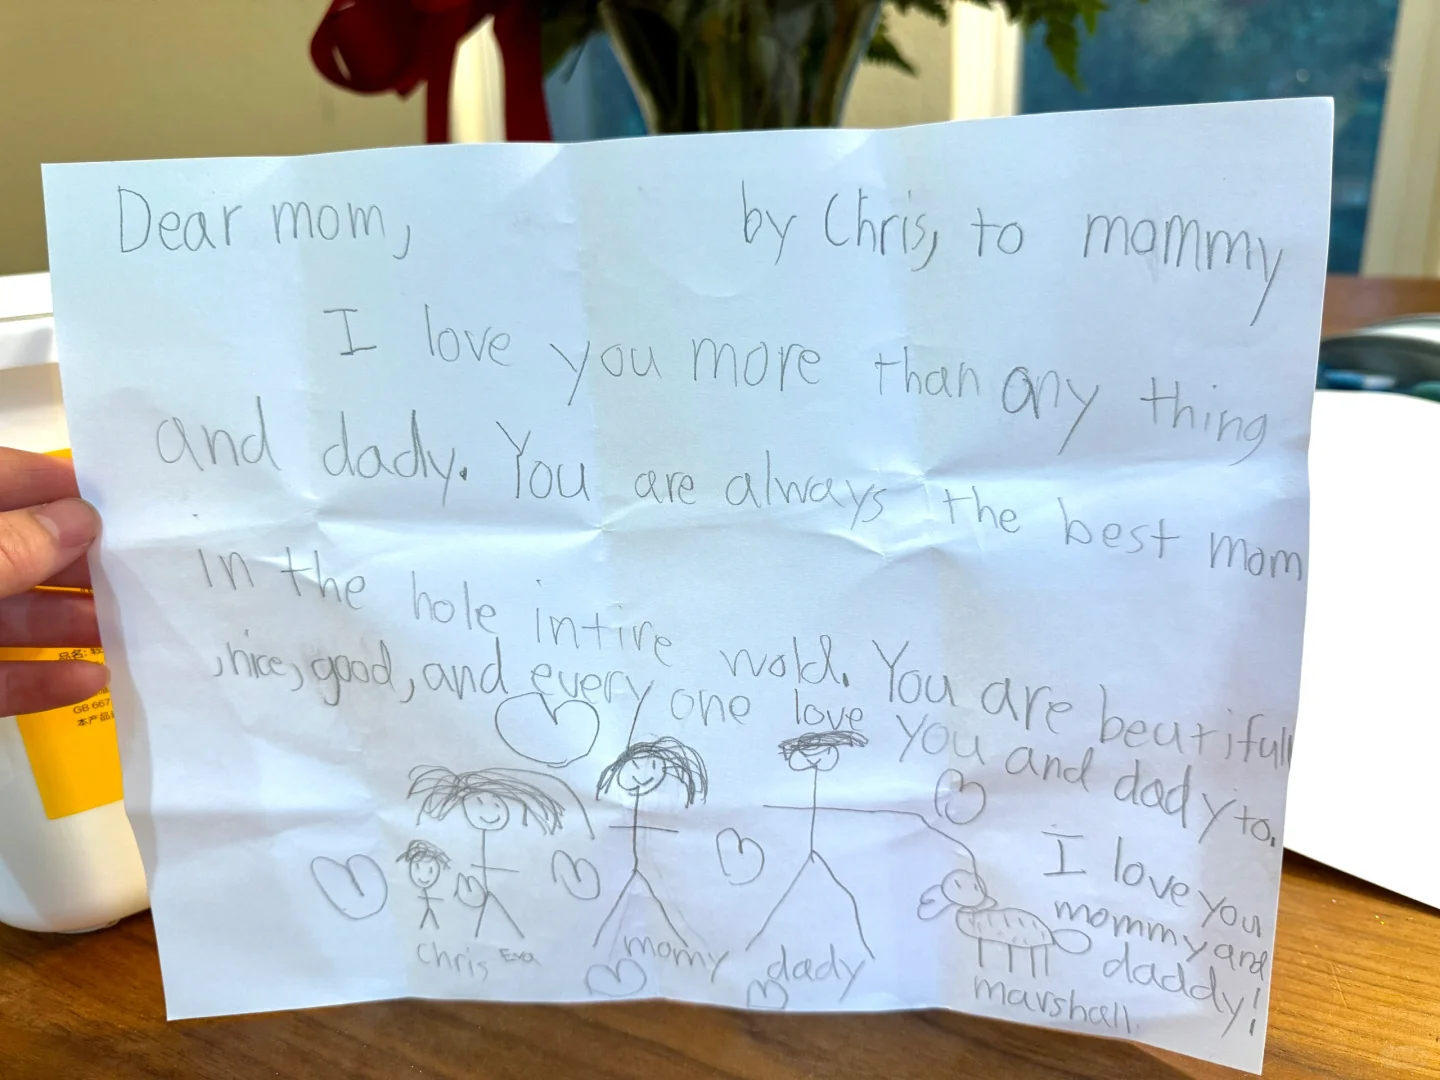 Dear mom,
by Chris, to mommy
I love you more than any thing
and dady. You are always the best mom
in the hole intire wold. You are beutifull
, nice, good, and every one love you and dady to.
I love you
mommy and
daddy!
Chris
Eva
momy
dady
marshall
品名:
GB 667
本产品